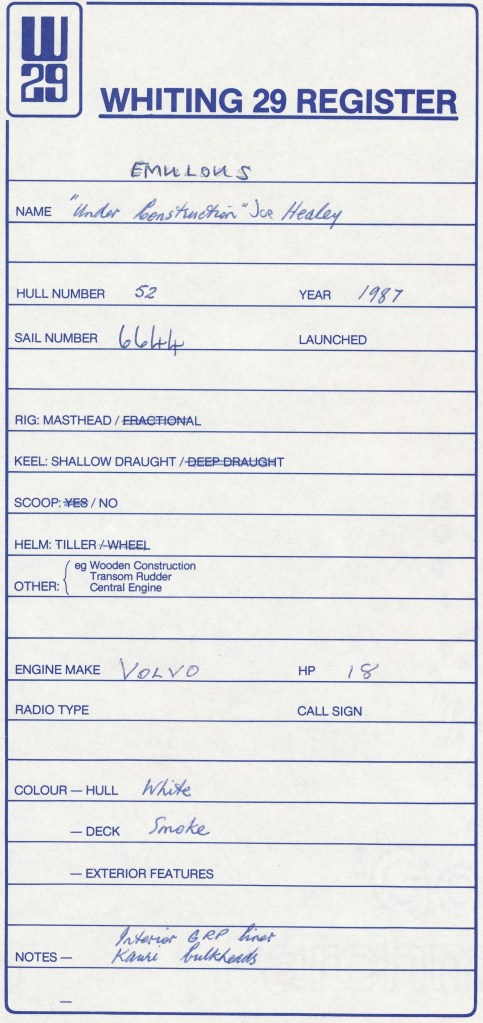 W
29
WHITING 29 REGISTER
EMULOUS
NAME "Under Construction" Joe Healey
HULL NUMBER 52 YEAR 1987
SAIL NUMBER 6644 LAUNCHED
RIG: MASTHEAD / FRACTIONAL
KEEL: SHALLOW DRAUGHT / DEEP DRAUGHT
SCOOP: YES / NO
HELM: TILLER / WHEEL
eg Wooden Construction
Transom Rudder
OTHER: Central Engine
ENGINE MAKE VOLVO HP 18
RADIO TYPE CALL SIGN
COLOUR — HULL White
— DECK Smoke
— EXTERIOR FEATURES
Interior GRP liner
NOTES — Kauri bulkheads
—